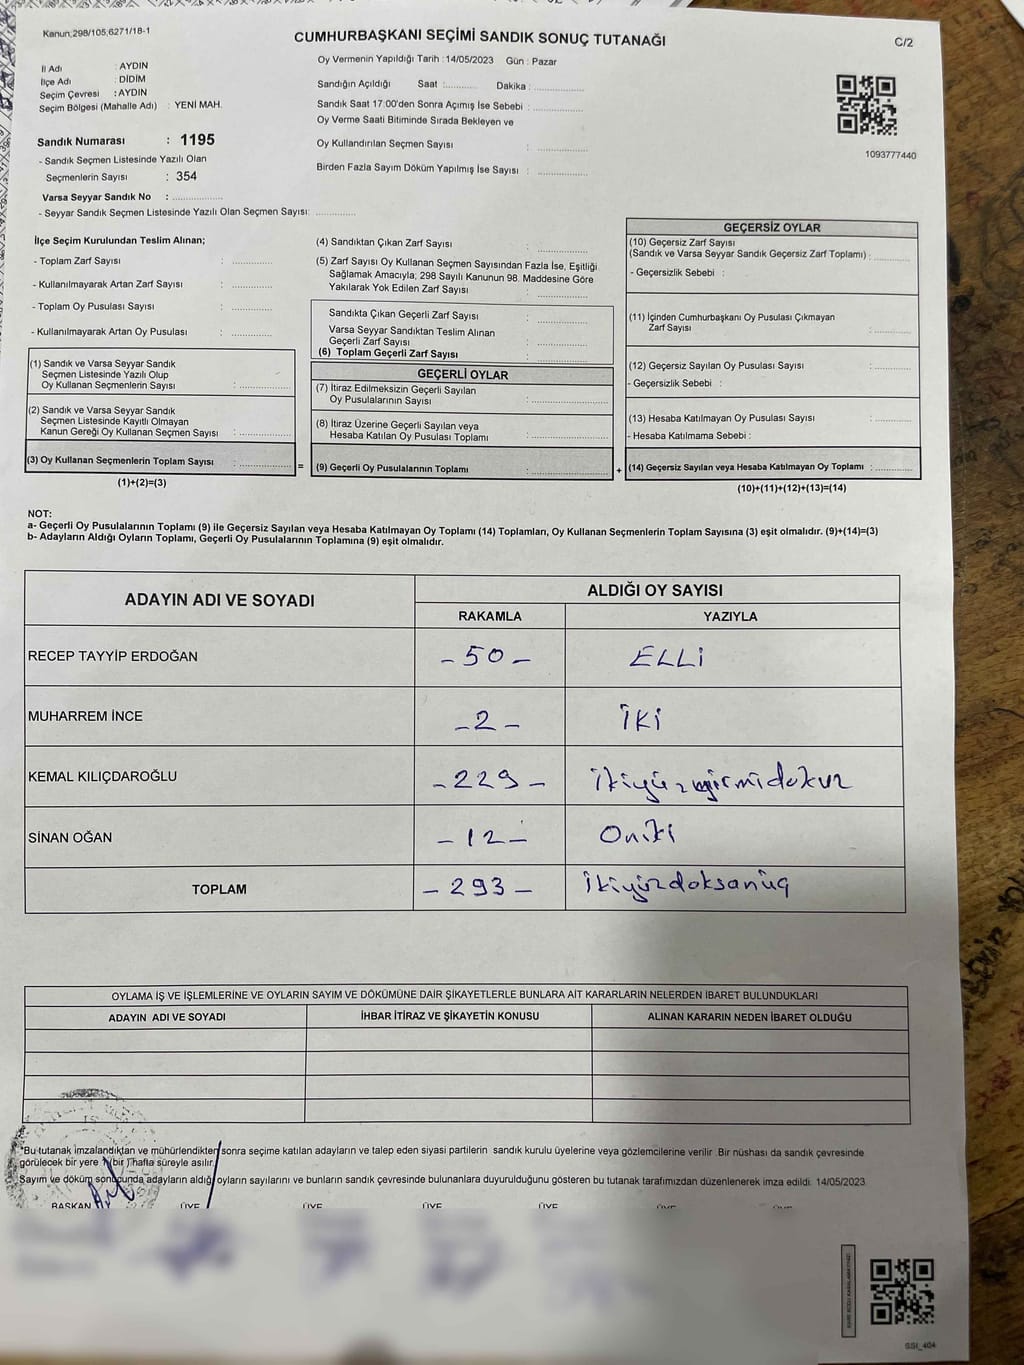 Kanun;298/105,6271/18-1
CUMHURBAŞKANI SEÇİMİ SANDIK SONUÇ TUTANAĞI
C/2
İl Adı : AYDIN
İlçe Adı : DİDİM
Seçim Çevresi : AYDIN
Seçim Bölgesi (Mahalle Adı) : YENİ MAH.
Sandık Numarası : 1195
- Sandık Seçmen Listesinde Yazılı Olan
Seçmenlerin Sayısı : 354
Varsa Seyyar Sandık No : ..................
- Seyyar Sandık Seçmen Listesinde Yazılı Olan Seçmen Sayısı: ..............
Oy Vermenin Yapıldığı Tarih : 14/05/2023 Gün : Pazar
Sandığın Açıldığı Saat :............ Dakika : ..................
Sandık Saat 17:00'den Sonra Açımış İse Sebebi : ..................
Oy Verme Saati Bitiminde Sırada Bekleyen ve
Oy Kullandırılan Seçmen Sayısı : ..................
Birden Fazla Sayım Döküm Yapılmış İse Sayısı : ..................
1093777440
İlçe Seçim Kurulundan Teslim Alınan;
- Toplam Zarf Sayısı : ..............
- Kullanılmayarak Artan Zarf Sayısı : ..............
- Toplam Oy Pusulası Sayısı : ..............
- Kullanılmayarak Artan Oy Pusulası : ..............
(1) Sandık ve Varsa Seyyar Sandık
Seçmen Listesinde Yazılı Olup
Oy Kullanan Seçmenlerin Sayısı : ..................
(2) Sandık ve Varsa Seyyar Sandık
Seçmen Listesinde Kayıtlı Olmayan
Kanun Gereği Oy Kullanan Seçmen Sayısı : ..................
(3) Oy Kullanan Seçmenlerin Toplam Sayısı : ..................
(1)+(2)=(3)
=
(4) Sandıktan Çıkan Zarf Sayısı : ..................
(5) Zarf Sayısı Oy Kullanan Seçmen Sayısından Fazla İse, Eşitliği
Sağlamak Amacıyla; 298 Sayılı Kanunun 98. Maddesine Göre
Yakılarak Yok Edilen Zarf Sayısı : ..................
Sandıkta Çıkan Geçerli Zarf Sayısı : ..................
Varsa Seyyar Sandıktan Teslim Alınan
Geçerli Zarf Sayısı : ..................
(6) Toplam Geçerli Zarf Sayısı : ..................
GEÇERLİ OYLAR
(7) İtiraz Edilmeksizin Geçerli Sayılan
Oy Pusulalarının Sayısı : ..................
(8) İtiraz Üzerine Geçerli Sayılan veya
Hesaba Katılan Oy Pusulası Toplamı : ..................
(9) Geçerli Oy Pusulalarının Toplamı : ..................
+
GEÇERSİZ OYLAR
(10) Geçersiz Zarf Sayısı
(Sandık ve Varsa Seyyar Sandık Geçersiz Zarf Toplamı) : ..............
- Geçersizlik Sebebi :
(11) İçinden Cumhurbaşkanı Oy Pusulası Çıkmayan
Zarf Sayısı : ..............
(12) Geçersiz Sayılan Oy Pusulası Sayısı : ..............
- Geçersizlik Sebebi :
(13) Hesaba Katılmayan Oy Pusulası Sayısı : ..............
- Hesaba Katılmama Sebebi :
(14) Geçersiz Sayılan veya Hesaba Katılmayan Oy Toplamı : ..............
(10)+(11)+(12)+(13)=(14)
NOT:
a- Geçerli Oy Pusulalarının Toplamı (9) ile Geçersiz Sayılan veya Hesaba Katılmayan Oy Toplamı (14) Toplamları, Oy Kullanan Seçmenlerin Toplam Sayısına (3) eşit olmalıdır. (9)+(14)=(3)
b- Adayların Aldığı Oyların Toplamı, Geçerli Oy Pusulalarının Toplamına (9) eşit olmalıdır.
ADAYIN ADI VE SOYADI ALDIĞI OY SAYISI
RAKAMLA YAZIYLA
RECEP TAYYİP ERDOĞAN - 50 - ELLİ
MUHARREM İNCE - 2 - İKİ
KEMAL KILIÇDAROĞLU - 229 - ikiyüzyirmidokuz
SİNAN OĞAN - 12 - Oniki
TOPLAM - 293 - ikiyüzdoksanüç
OYLAMA İŞ VE İŞLEMLERİNE VE OYLARIN SAYIM VE DÖKÜMÜNE DAİR ŞİKAYETLERLE BUNLARA AİT KARARLARIN NELERDEN İBARET BULUNDUKLARI
ADAYIN ADI VE SOYADI İHBAR İTİRAZ VE ŞİKAYETİN KONUSU ALINAN KARARIN NEDEN İBARET OLDUĞU
*Bu tutanak imzalandıktan ve mühürlendikten sonra seçime katılan adayların ve talep eden siyasi partilerin sandık kurulu üyelerine veya gözlemcilerine verilir .Bir nüshası da sandık çevresinde
görülecek bir yere 1(bir ) hafta süreyle asılır.
Sayım ve döküm sonucunda adayların aldığı oyların sayılarını ve bunların sandık çevresinde bulunanlara duyurulduğunu gösteren bu tutanak tarafımızdan düzenlenerek imza edildi. 14/05/2023
BAŞKAN ÜYE ÜYE ÜYE ÜYE
SSI_404